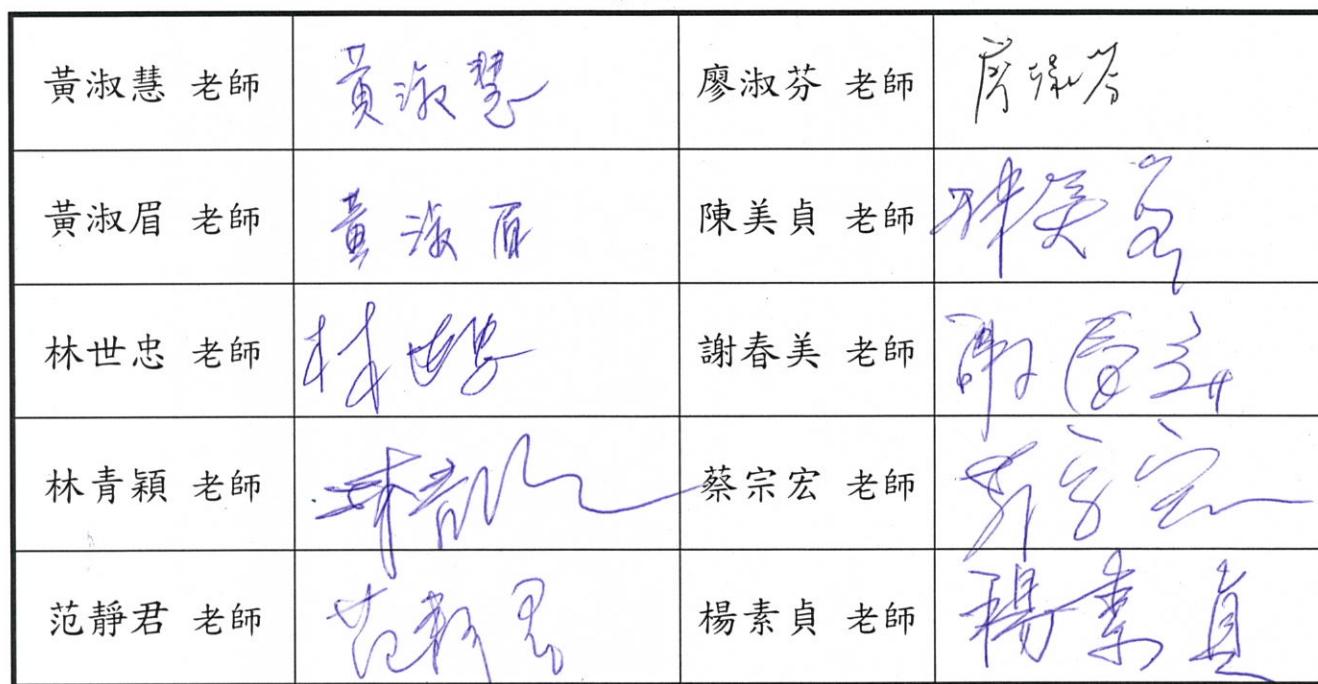 黃淑慧 老師 黃淑慧 廖淑芬 老師 廖淑芬
黃淑眉 老師 黃淑眉 陳美貞 老師 陳美貞
林世忠 老師 林世忠 謝春美 老師 謝春美
林青穎 老師 林青穎 蔡宗宏 老師 蔡宗宏
范靜君 老師 范靜君 楊素貞 老師 楊素貞